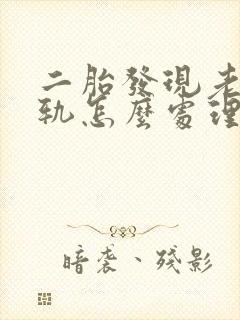 二胎發現老
軌怎麼處理
暗襲、殘影